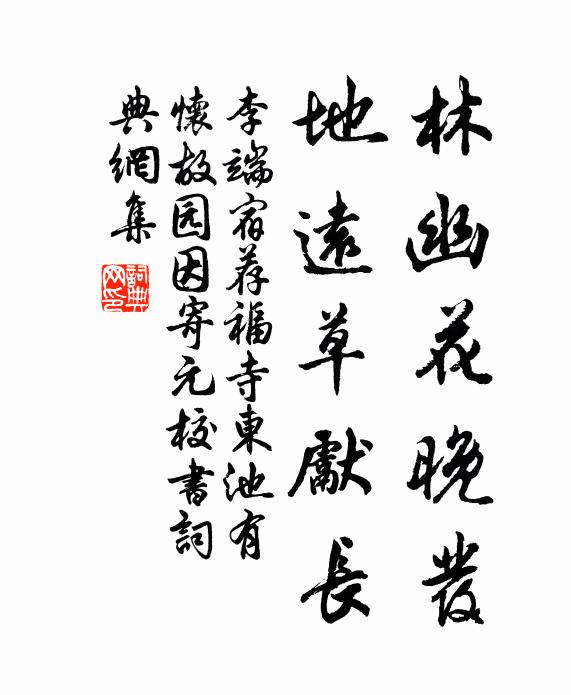 林幽花晚發
地遠草獻長
李端宿荐福寺東池有
懷故园因寄元校書詞
典網集
詞典网印